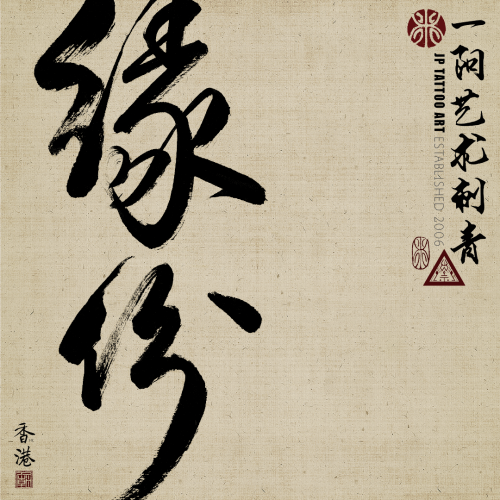 缘份
一阳艺术刺青
JP TATTOO ART ESTABLISHED 2006
香港